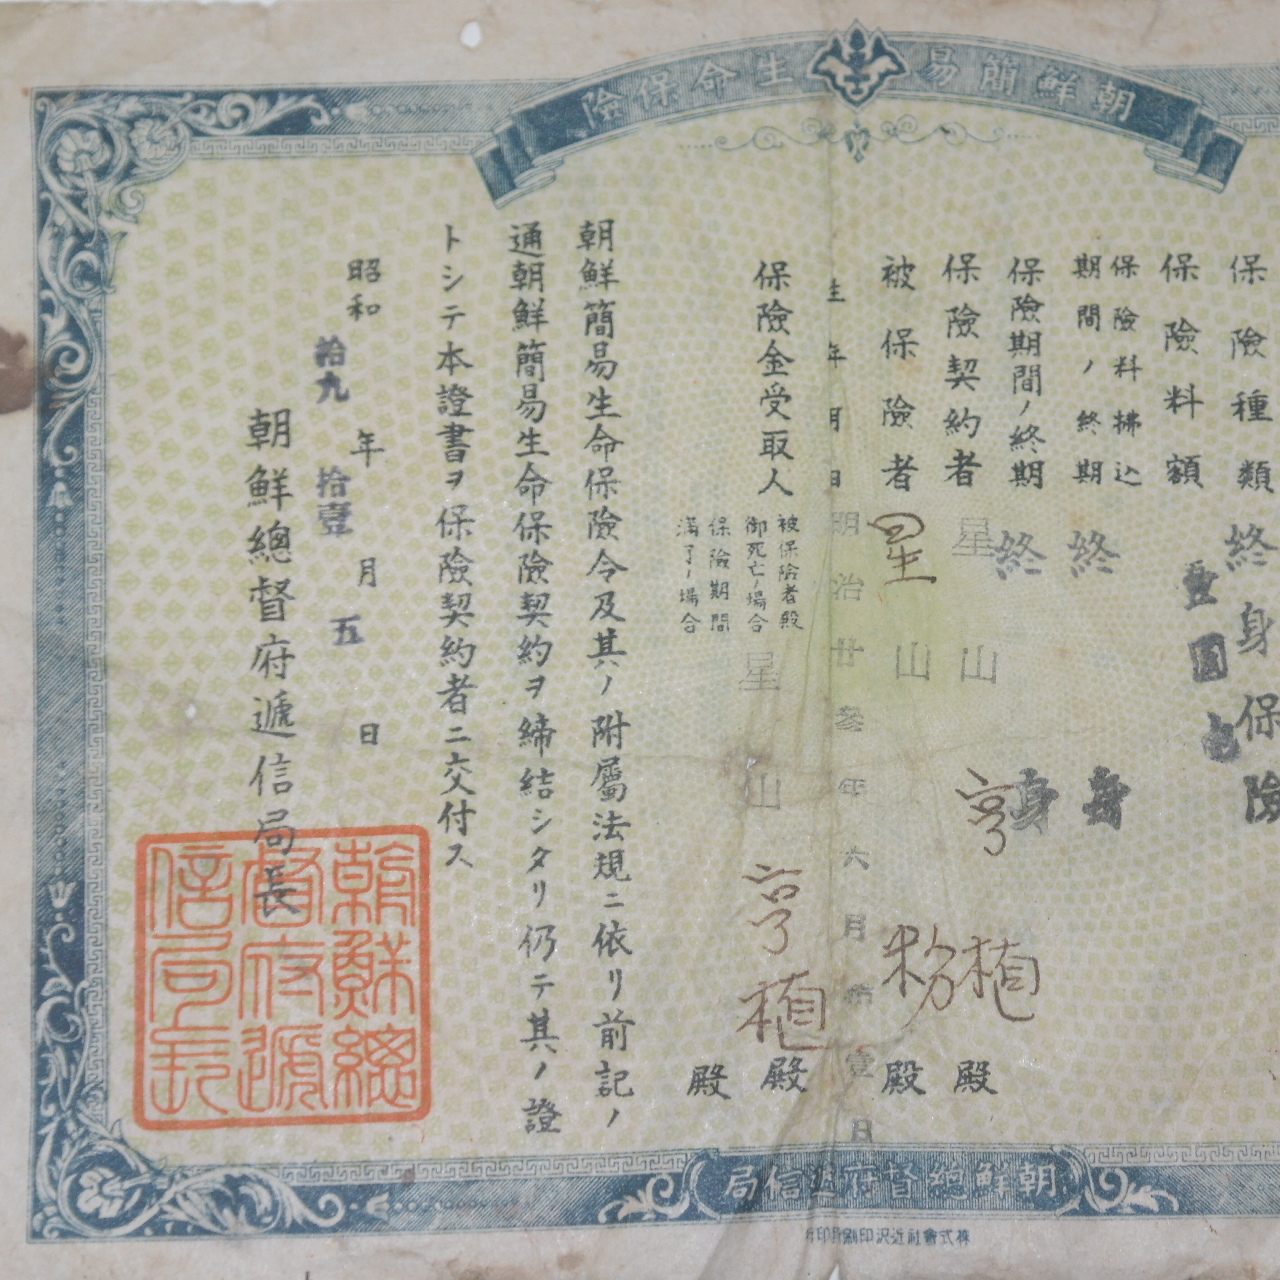 朝鮮簡易生命保險
保險種類 終身保險
保險料額 壹圓也
保險料拂込
期間ノ終期 終身
保險期間ノ終期 終身
保險契約者 星山亨植殿
被保險者 星山粉殿
生年月日 明治廿参年六月拾壹日
保險金受取人
被保險者殿
御死亡ノ場合 星山亨植殿
保險期間
滿了ノ場合 殿
朝鮮簡易生命保險令及其ノ附屬法規ニ依リ前記ノ
通朝鮮簡易生命保險契約ヲ締結シタリ仍テ其ノ證
トシテ本證書ヲ保險契約者ニ交付ス
昭和拾九年拾壹月五日
朝鮮總督府遞信局長
朝鮮總
督府遞
信局長
朝鮮總督府遞信局